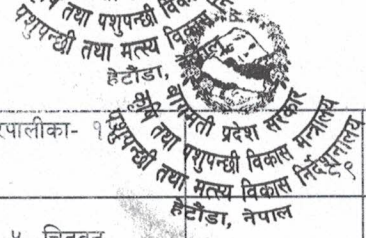 कृषि तथा पशुपन्छी विकास
पशुपन्छी तथा मत्स्य विकास
हेटौंडा, नेपाल
रपालीका- १
बागमती प्रदेश सरकार
कृषि तथा पशुपन्छी विकास मन्त्रालय
पशुपन्छी तथा मत्स्य विकास निर्देशनालय
हेटौंडा, नेपाल
९
५ चितवन